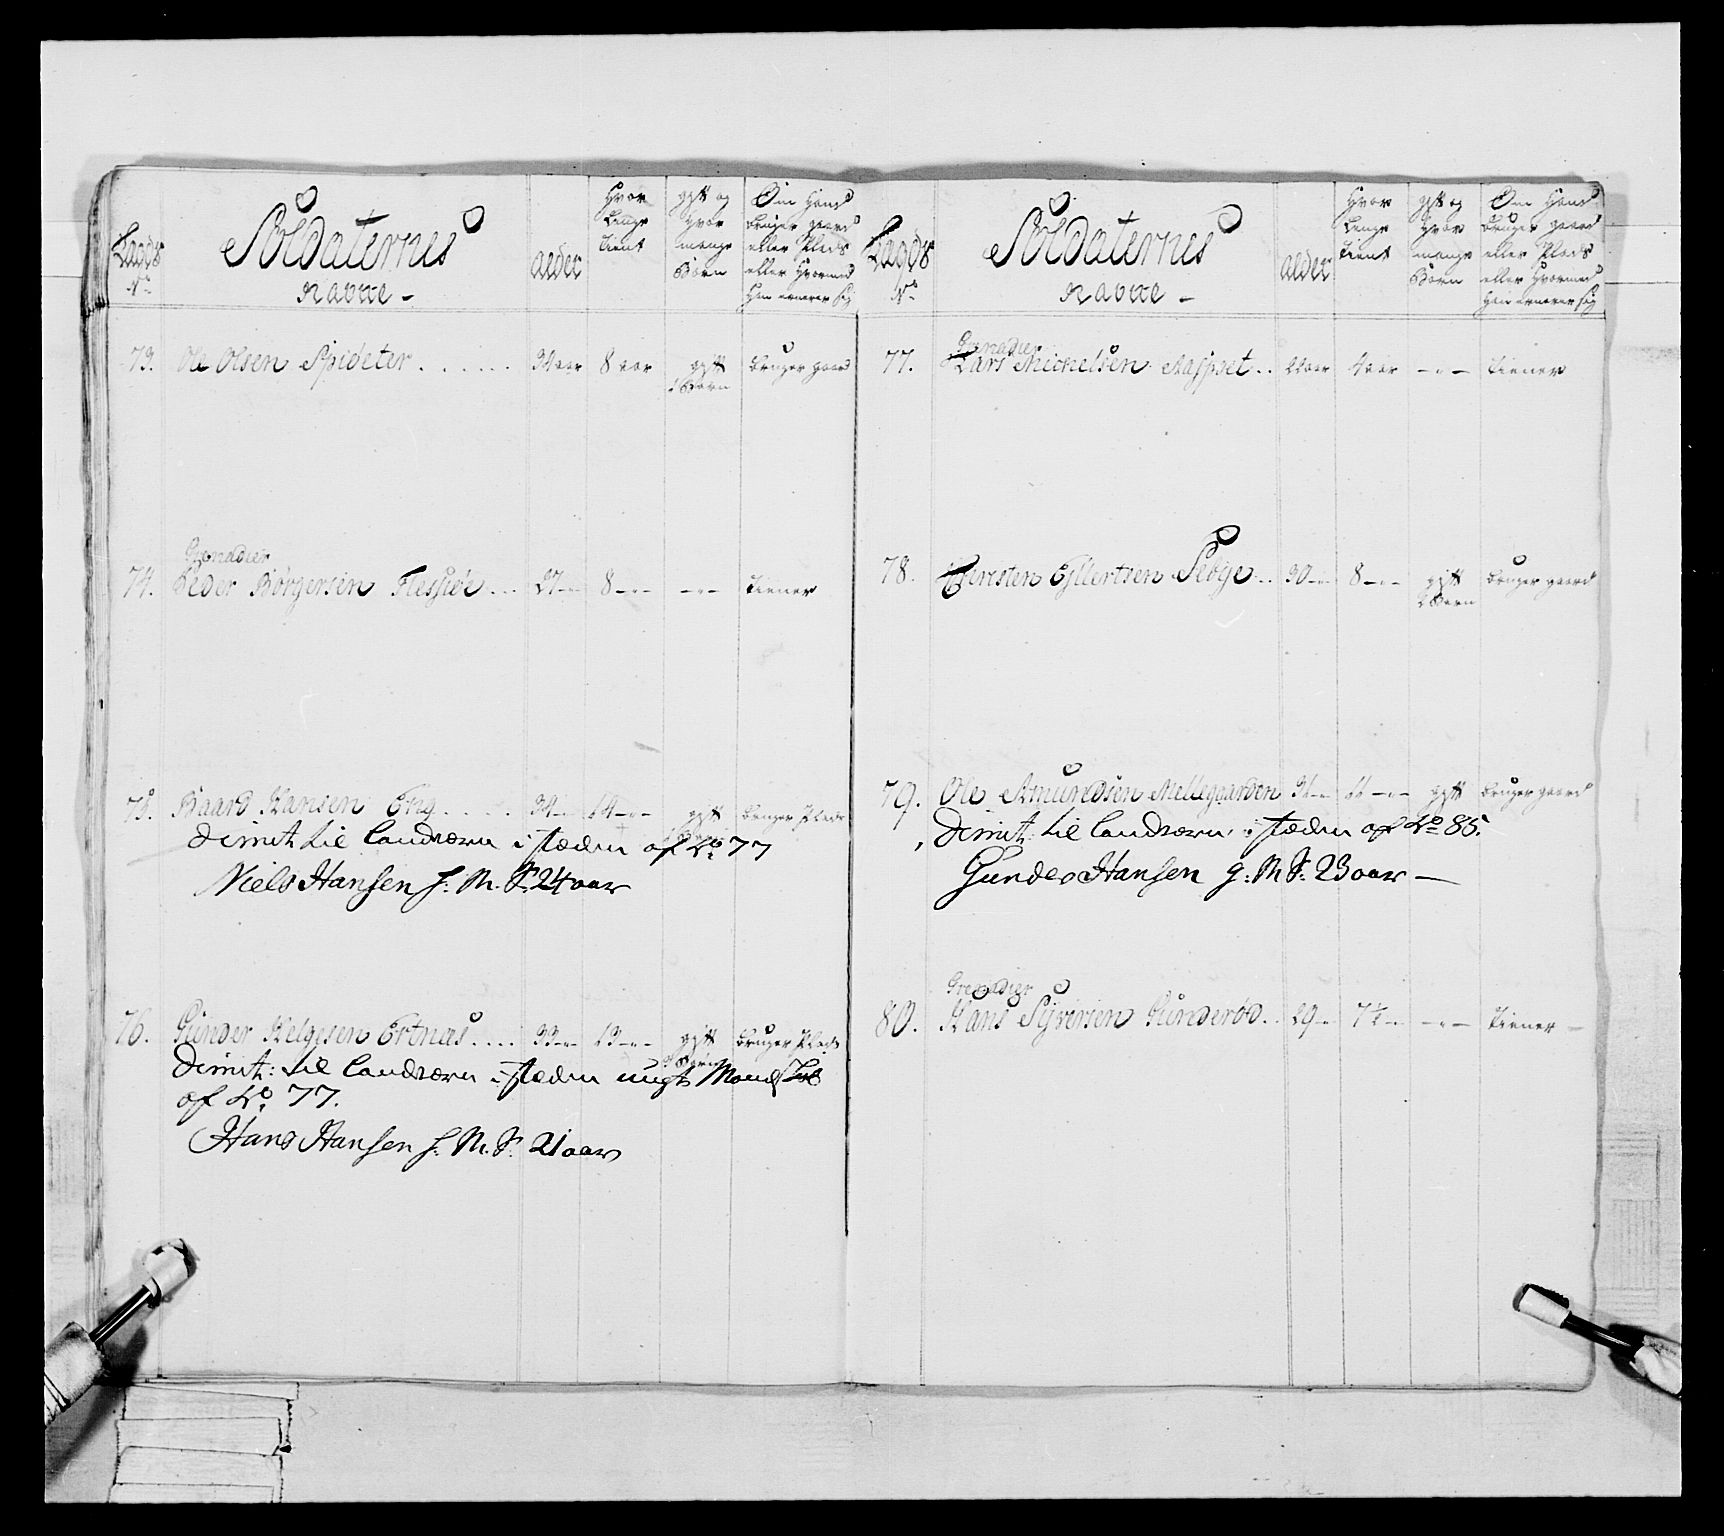 Lægds
No
Soldaternes
Navne -
alder
Hvor
Lenge
tient
gift og
Hvor
mange
Børn
Om Hand
bruger gaard
eller Plads
eller Hvormed
Han ernerer sig
73. Ole Olsen Spideter . . . . . . 34 aar 8 aar gift bruger gaard
1 Børn
Grenadier
74. Peder Børgersen Flessiøe . . . 27 -"- 8 -"- -"- tiener
75. Baard Hansen Eng . . . . . 34 -"- 14 -"- gift bruger Plads
Dimit: til landværn i stæden af No 77
Niels Hansen h: M. S: 24 aar
76. Gunder Helgesen Ertnæs . . . . 33 -"- 13 -"- gift bruger Plads
Børn
Dimit: til landværn i stæden ungt Mandskab
af No 77.
Hans Hansen h: M. S: 21 aar
Lægds
No
Soldaternes
Navne -
alder
Hvor
Lenge
tient
gift og
Hvor
mange
Børn
Om Hand
bruger gaard
eller Plads
eller Hvormed
Han ernerer sig
Grenadier
77. Lars Michelsen Aasset . . 22 aar 4 aar -"- tiener
78. Christen Ejllertsen Sebye . . 30 -"- 8 -"- gift bruger gaard
2 Børn
79. Ole Amundsen Mellegaarden 31 -"- 11 -"- gift bruger gaard
Dimit: til landværn i stæden af No 85.
Gunder Hansen g: M S: 23 aar -
Grenadier
80. Hans Sijversen Gunderød . . 29 -"- 7½ -"- -"- tiener -